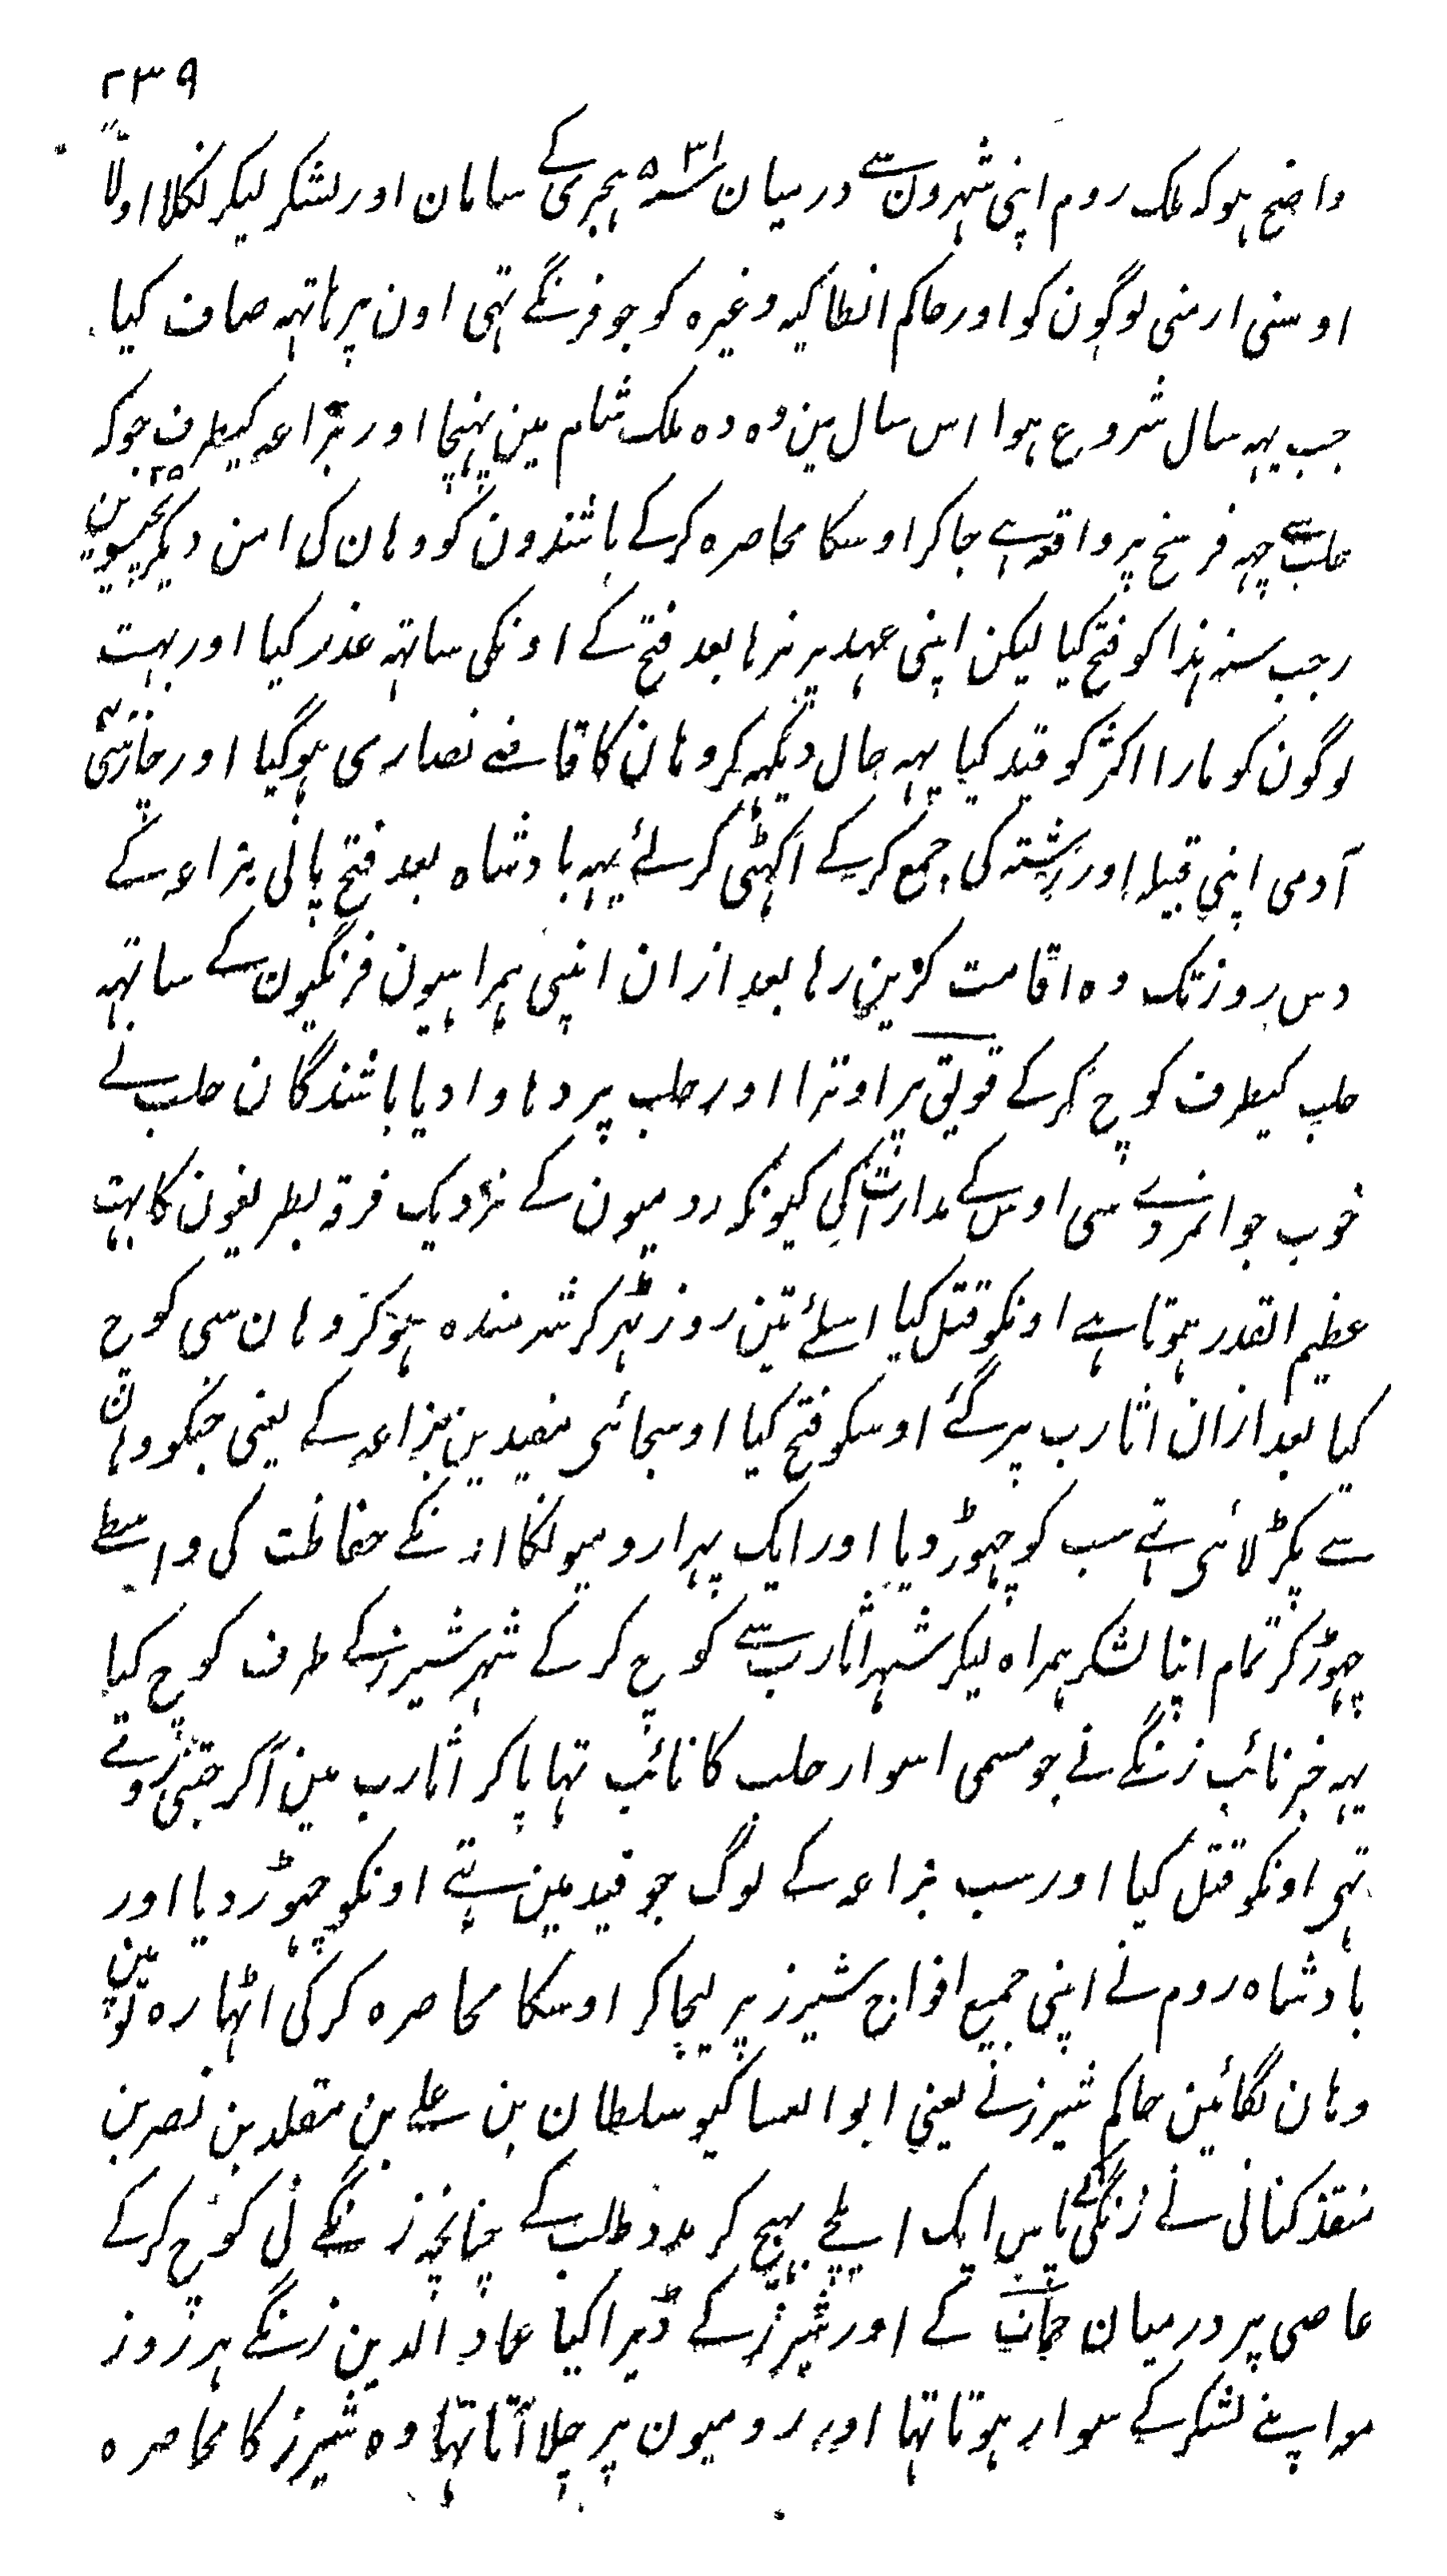 ۲۳۹
واضح ہوکہ ملک روم اپنی شہرون سے درمیان سنہ ۵۳۱ ہجری کے سامان اور لشکر لیکر نکلا اولاً
اوسنی ارمنی لوگون کو اور حاکم انطاکیہ وغیرہ کو جو فرنگے تہی اون پر ہاتہہ صاف کیا
جب یہہ سال شروع ہوا اس سال مین وہ وہ ملک شام مین پہنچا اور بزاعہ کیطرف جوکہ
حلب سے چہہ فرسخ پر واقعہے جاکر اوسکا محاصرہ کرکے باشندون کو وہان کی امن دیکر پچیسوین ۲۵
رجب سنہ ہذا کو فتح کیا لیکن اپنی عہد پر نرہا بعد فتح کے اونکی ساتہہ عذر کیا اور بہت
لوگون کو مارا اکثر کو قید کیا یہہ حال دیکہہ کر وہان کا قاضے نصاری ہوگیا اور چارسی
آدمی اپنی قبیلہ اور رشتہ کی جمع کرکے اکہٹی کرلئے یہہ بادشاہ بعد فتح پانی بزاعہ کے
دس روز تک وہ اقامت گزین رہا بعد ازان اپنی ہمراہیون فرنگیون کے ساتہہ
حلب کیطرف کوچ کرکے قویق پر اوترا اور حلب پر دہاوا دیا باشندگان حلب نے
خوب جوانمردے سی اوس کے مدارات کی کیونکہ رومیون کے نزدیک فرقہ بطریقون کا بہت
عظیم القدر ہوتا ہے اونکو قتل کیا اسلئے تین روز ٹہر کر شرمندہ ہوکر وہان سی کوچ
کیا بعد ازان اثارب پر گئے اوسکو فتح کیا اوسجائی مقیدین بزاعہ کے یعنی جنکو وہان
سے پکڑ لائی تہے سب کو چہوڑ دیا اور ایک پہرا رومیونکا اونکے حفاظت کی واسطے
چہوڑ کر تمام اپنا لشکر ہمراہ لیکر شہر اثارب سے کوچ کرکے شہر شیرز کے طرف کوچ کیا
یہہ خبر نائب زنگے نے جو مسمی اسوار حلب کا نائب تہا پاکر اثارب مین آکر جتنی روتے
تہی اونکو قتل کیا اور سب بزاعہ کے لوگ جو قید مین تہے اونکو چہوڑ دیا اور
بادشاہ روم نے اپنی جمیع افواج شیرز پر لیجا کر اوسکا محاصرہ کرکی اٹہارہ توپین
وہان لگائین حاکم شیرز نے یعنی ابو العساکیو سلطان بن علے بن مقلد بن نصر بن
منقذ کنانی نے زنگی کے پاس ایک ایلچے بہیج کر مدد طلب کے چنانچہ زنگے نی کوچ کرکے
عاصی پر درمیان حمات کے اور شیرز کے ڈیرا کیا عماد الدین زنگے ہر روز
مہ اپنے لشکر کے سوار ہوتا تہا اور رومیون پر چلا آتا تہا وہ شیرز کا محاصرہ